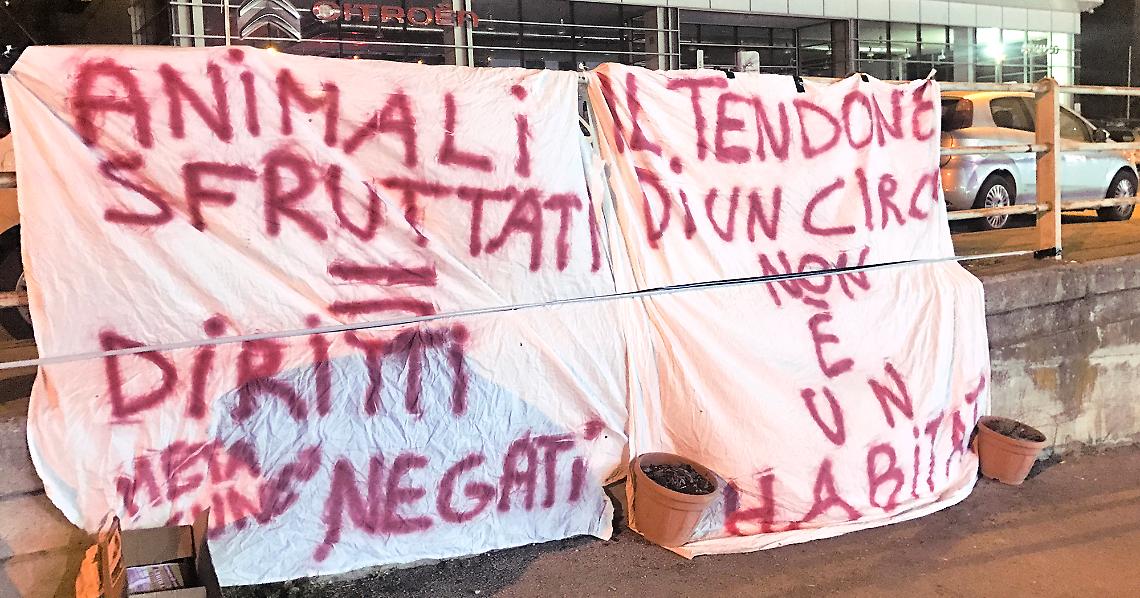 CITROËN
ANiMALi
SFRUTTATI
=
DiRiTTi
NEGATi
IL TENDONE
Di UN CIRCO
NON
È
UN
HABITAT